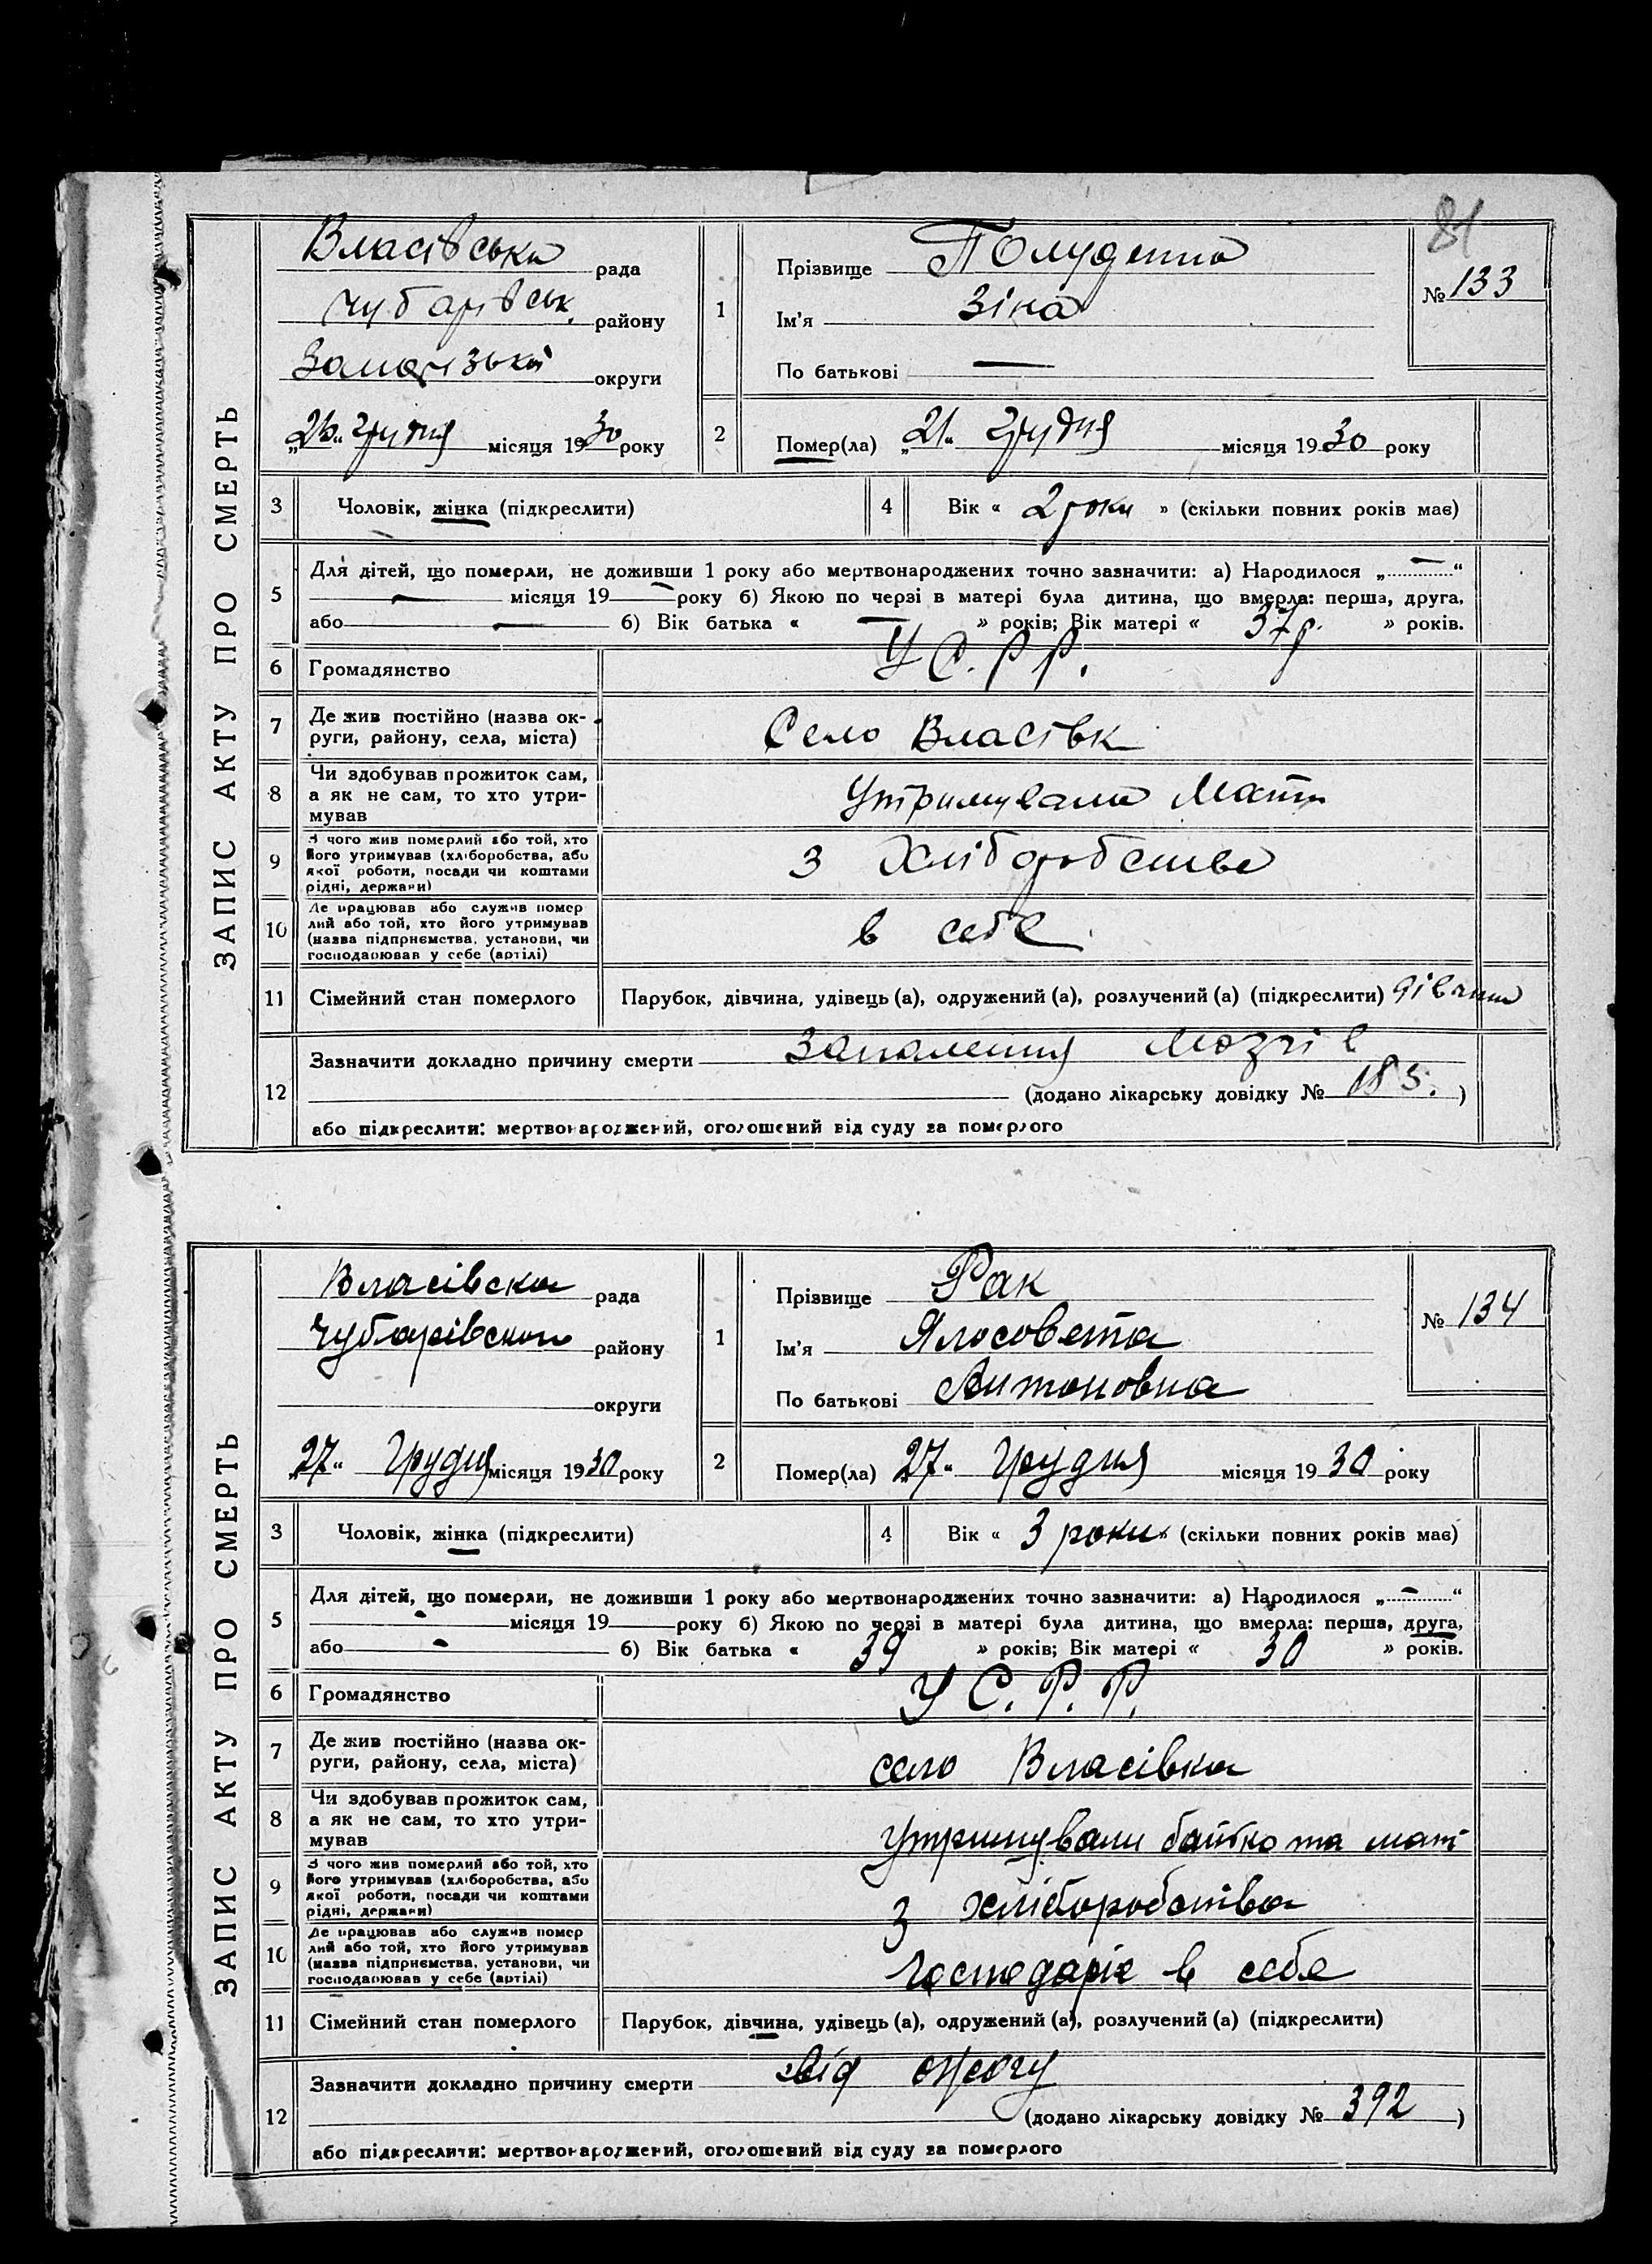 81
ЗАПИС АКТУ ПРО СМЕРТЬ
Власівська рада
Чубарівськ. району
округи
грудня місяця 1930 року
1
Прізвище
Ім'я Зіна
По батькові —
№ 133
2
Помер(ла) „21“ грудня місяця 1930 року
3 Чоловік, жінка (підкреслити)
4 Вік « 2 роки » (скільки повних років має)
5
Для дітей, що померли, не доживши 1 року або мертвонароджених точно зазначити: а) Народилося „—“
— місяця 19— року б) Якою по черзі в матері була дитина, що вмерла: перша, друга,
або — б) Вік батька « — » років; Вік матері « 37 р. » років.
6 Громадянство У С. Р Р.
7
Де жив постійно (назва ок-
руги, району, села, міста)
Село Власівк
8
Чи здобував прожиток сам,
а як не сам, то хто утри-
мував
Утримувала Мати
9
З чого жив померлий або той, хто
його утримував (хліборобства, або
якої роботи, посади чи коштами
рідні, держави)
З Хліборобства
10
Де працював або служив помер
лий або той, хто його утримував
(назва підприємства, установи, чи
господарював у себе (артілі)
в себе
11 Сімейний стан померлого Парубок, дівчина, удівець (а), одружений (а), розлучений (а) (підкреслити)
12
Зазначити докладно причину смерти Запалення мозгів
(додано лікарську довідку № 185. )
або підкреслити: мертвонароджений, оголошений від суду за померлого
ЗАПИС АКТУ ПРО СМЕРТЬ
Власівска рада
Чубарівского району
округи
„27“ Грудня місяця 1930 року
1
Прізвище Рак
Ім'я Ялосовета
По батькові Антоновна
№ 134
2
Помер(ла) „27“ Грудня місяця 1930 року
3 Чоловік, жінка (підкреслити)
4 Вік « 3 роки » (скільки повних років має)
5
Для дітей, що померли, не доживши 1 року або мертвонароджених точно зазначити: а) Народилося „—“
- місяця 19— року б) Якою по черзі в матері була дитина, що вмерла: перша, друга,
або - б) Вік батька « 39 » років; Вік матері « 30 » років.
6 Громадянство У С. Р. Р.
7
Де жив постійно (назва ок-
руги, району, села, міста)
село Власівка
8
Чи здобував прожиток сам,
а як не сам, то хто утри-
мував
утримували батько та мати
9
З чого жив померлий або той, хто
його утримував (хліборобства, або
якої роботи, посади чи коштами
рідні, держави)
з хліборобства
10
Де працював або служив помер
лий або той, хто його утримував
(назва підприємства, установи, чи
господарював у себе (артілі)
господаріє в себе
11 Сімейний стан померлого Парубок, дівчина, удівець (а), одружений (а), розлучений (а) (підкреслити)
12
Зазначити докладно причину смерти від ожогу
(додано лікарську довідку № 392 )
або підкреслити: мертвонароджений, оголошений від суду за померлого